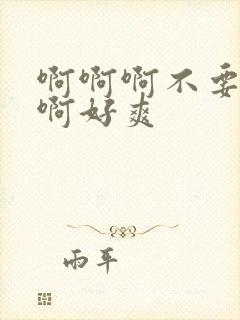 啊啊啊不要
啊好爽
雨平